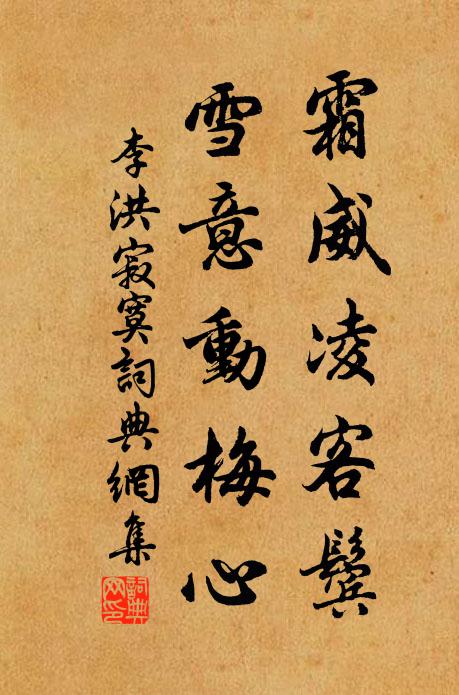 霜威凌客鬢
雪意動梅心
李洪寂寞詞典網集
詞典
网印